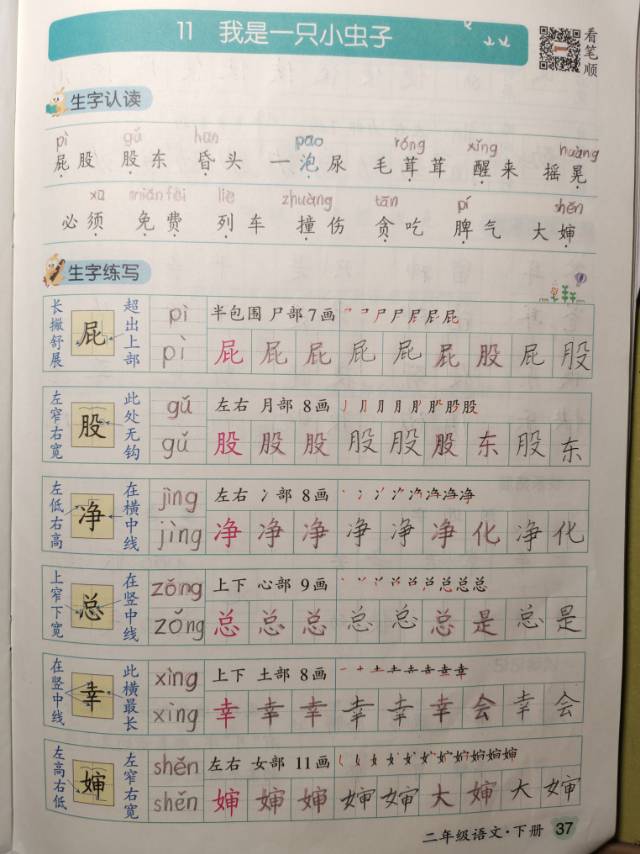 11 我是一只小虫子
看笔顺
生字认读
pì gǔ hūn pāo róng xǐng huàng
屁股 股东 昏头 一泡尿 毛茸茸 醒来 摇晃
xū miǎn fèi liè zhuàng tān pí shěn
必须 免费 列车 撞伤 贪吃 脾气 大婶
生字练写
长撇舒展 屁 超出上部 pì 半包围 尸部 7画
pì 屁 屁 屁 屁 屁 屁 股 屁 股
左窄右宽 股 此处无钩 gǔ 左右 月部 8画
gǔ 股 股 股 股 股 股 东 股 东
左低右高 净 在横中线 jìng 左右 冫部 8画
jìng 净 净 净 净 净 净 化 净 化
上窄下宽 总 在竖中线 zǒng 上下 心部 9画
zǒng 总 总 总 总 总 总 是 总 是
在竖中线 幸 此横最长 xìng 上下 土部 8画
xìng 幸 幸 幸 幸 幸 幸 会 幸 会
左高右低 婶 左窄右宽 shěn 左右 女部 11画
shěn 婶 婶 婶 婶 婶 大 婶 大 婶
二年级语文·下册 37